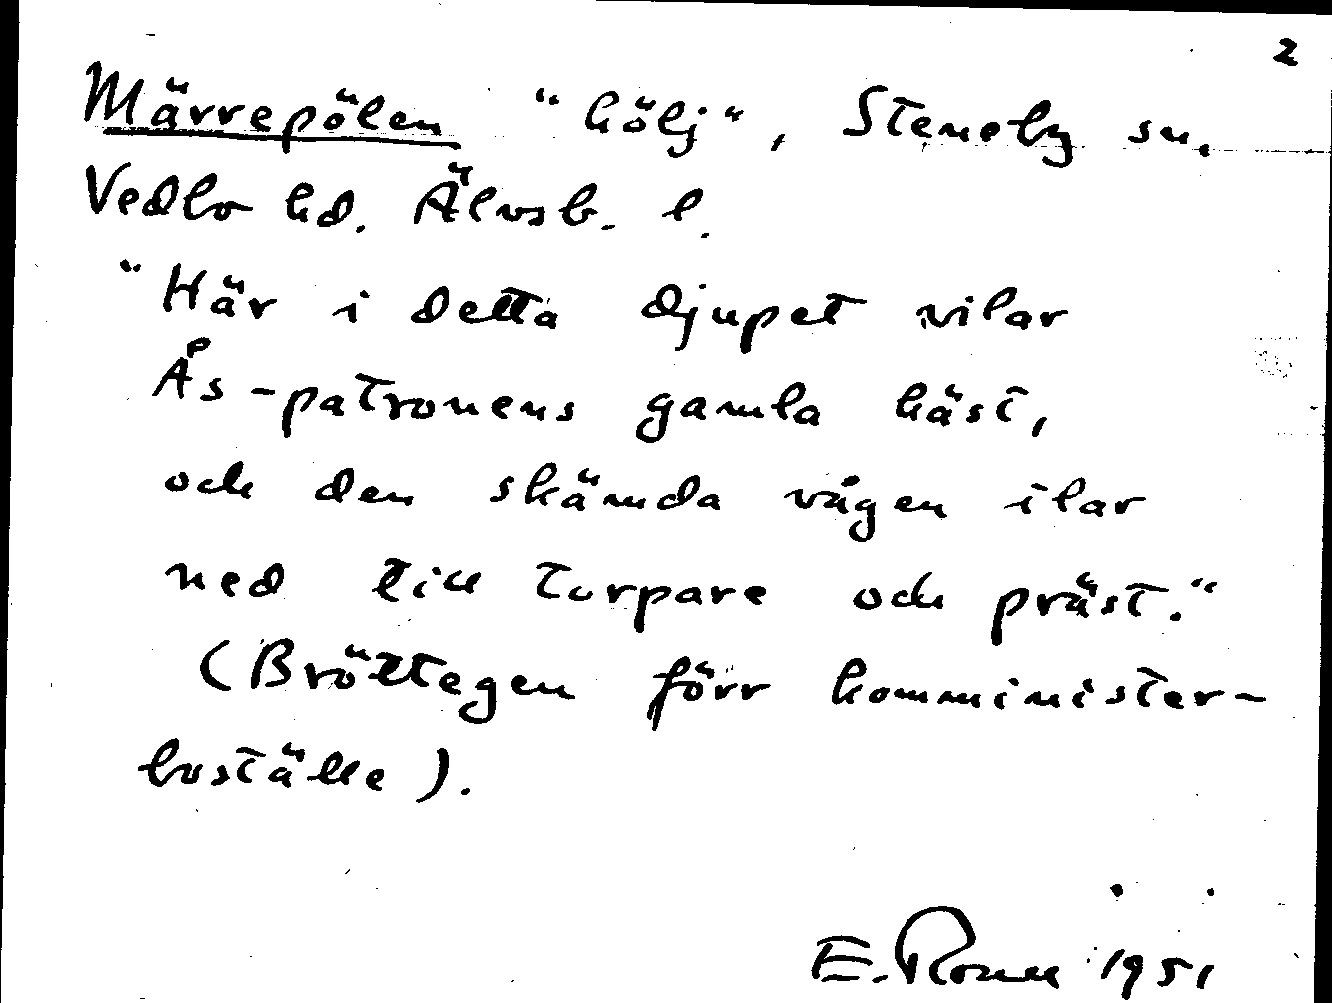 2
Märrepölen "hölj", Steneby sn.
Vedbo hd. Älvsb. l.
"Här i detta djupet vilar
Ås-patronens gamla häst,
och den skämda vågen ilar
ned till torpare och präst."
(Bröttegen förr komminister-
boställe).
E. 1951